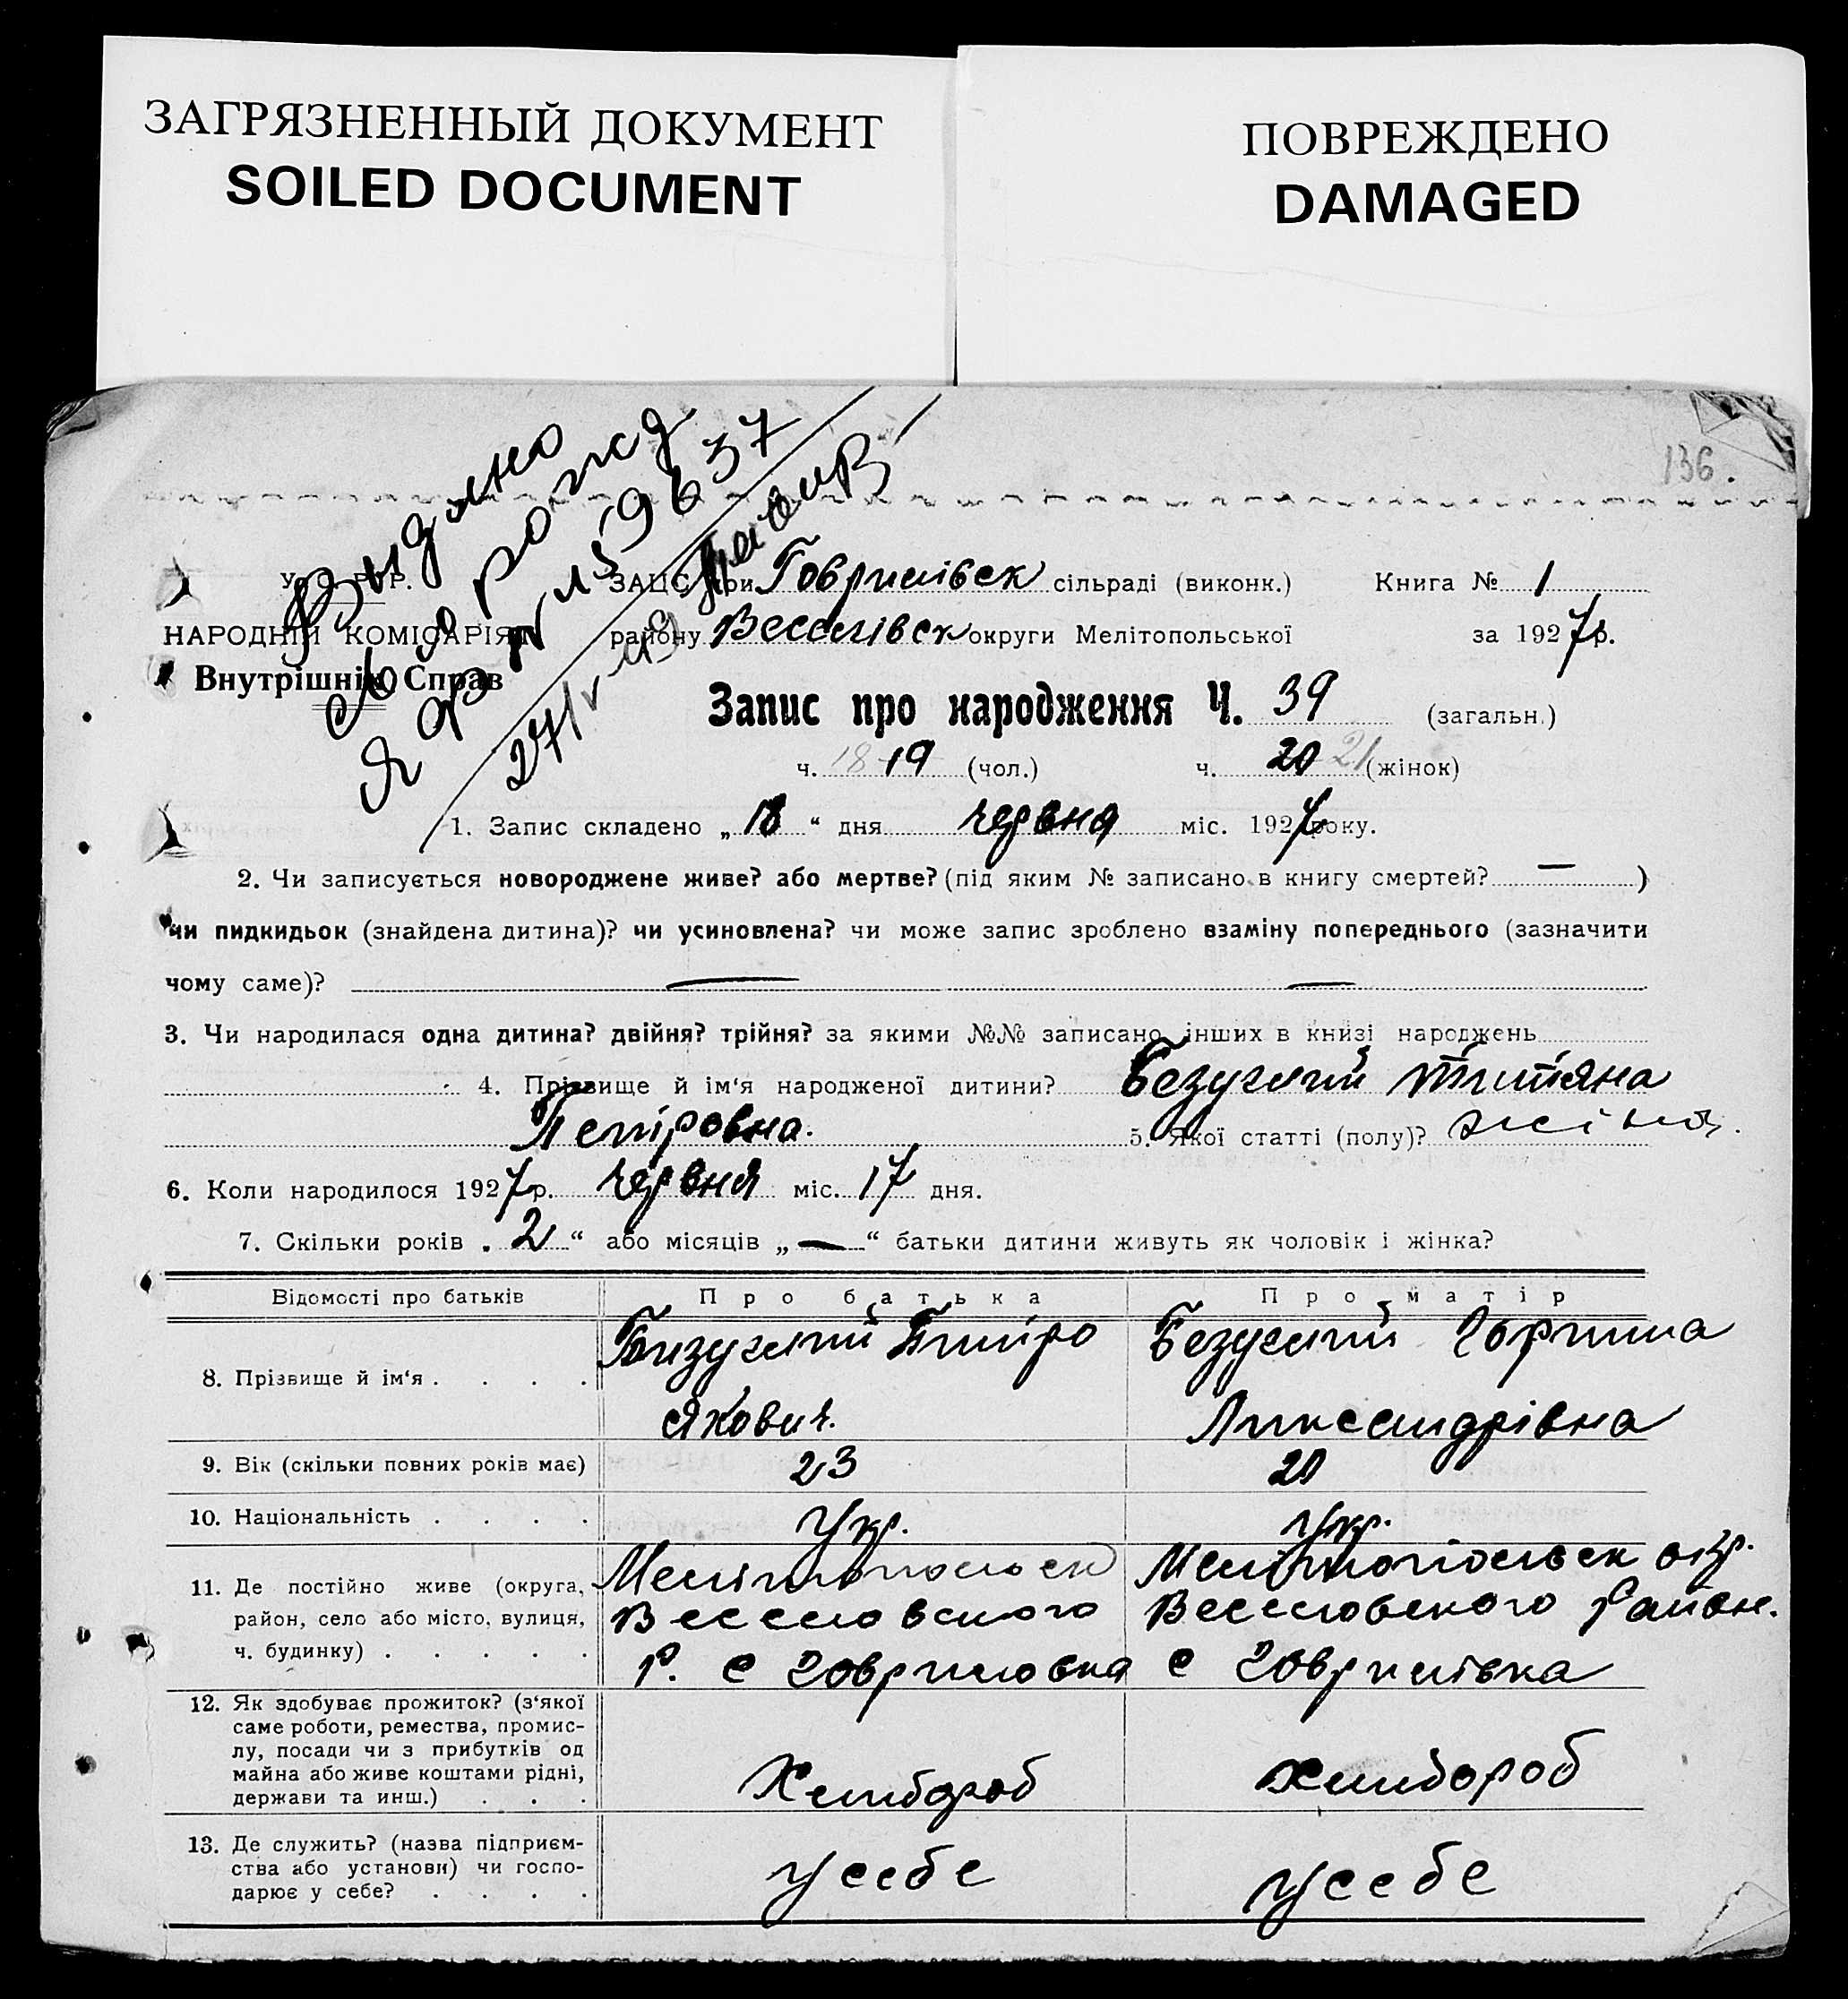 ЗАГРЯЗНЕННЫЙ ДОКУМЕНТ
SOILED DOCUMENT
ПОВРЕЖДЕНО
DAMAGED
136.
Выдано
св о рожд
ЯФ № 159637
27/V-49
У. С. Р. Р.
НАРОДНІЙ КОМІСАРІЯТ
Внутрішніх Справ
ЗАЦС при Говрилівск сільраді (виконк.) Книга № 1
району Веселівск округи Мелітопольської за 1927 р.
Запис про народження Ч. 39 (загальн.)
ч. 18 19 (чол.) ч. 20 21 (жінок)
1. Запис складено „ 18 “ дня червня міс. 1927 року.
2. Чи записується новороджене живе? або мертве? (під яким № записано в книгу смертей? — )
чи пидкидьок (знайдена дитина)? чи усиновлена? чи може запис зроблено взаміну попереднього (зазначити
чому саме)? — —
3. Чи народилася одна дитина? двійня? трійня? за якими №№ записано інших в книзі народжень
4. Прізвище й ім‘я народженої дитини? Безуглий Титяна
Петровна. 5. Якої статті (полу)? жіноч.
6. Коли народилося 1927 р. червня міс. 17 дня.
7. Скільки років „ 2 “ або місяців „ — “ батьки дитини живуть як чоловік і жінка?
Відомості про батьків Про батька Про матір
8. Прізвище й ім‘я . . . .
Безуглий Питро
Якович.
Безуглий Горпина
Ликсандрівна
9. Вік (скільки повних років має) 23 20
10. Національність . . . . Укр. Укр.
11. Де постійно живе (округа,
район, село або місто, вулиця,
ч. будинку) . . . . .
Мелітопольск
Веселовского
Р. с Говриловка
Мелітопольск окр.
Веселовского Район.
с Говрилівка
12. Як здобуває прожиток? (з‘якої
саме роботи, ремества, промис-
лу, посади чи з прибутків од
майна або живе коштами рідні,
держави та инш.) . . .
Хлибороб
хлибороб
13. Де служить? (назва підприєм-
ства або установи) чи госпо-
дарює у себе? . . . .
усебе
усебе